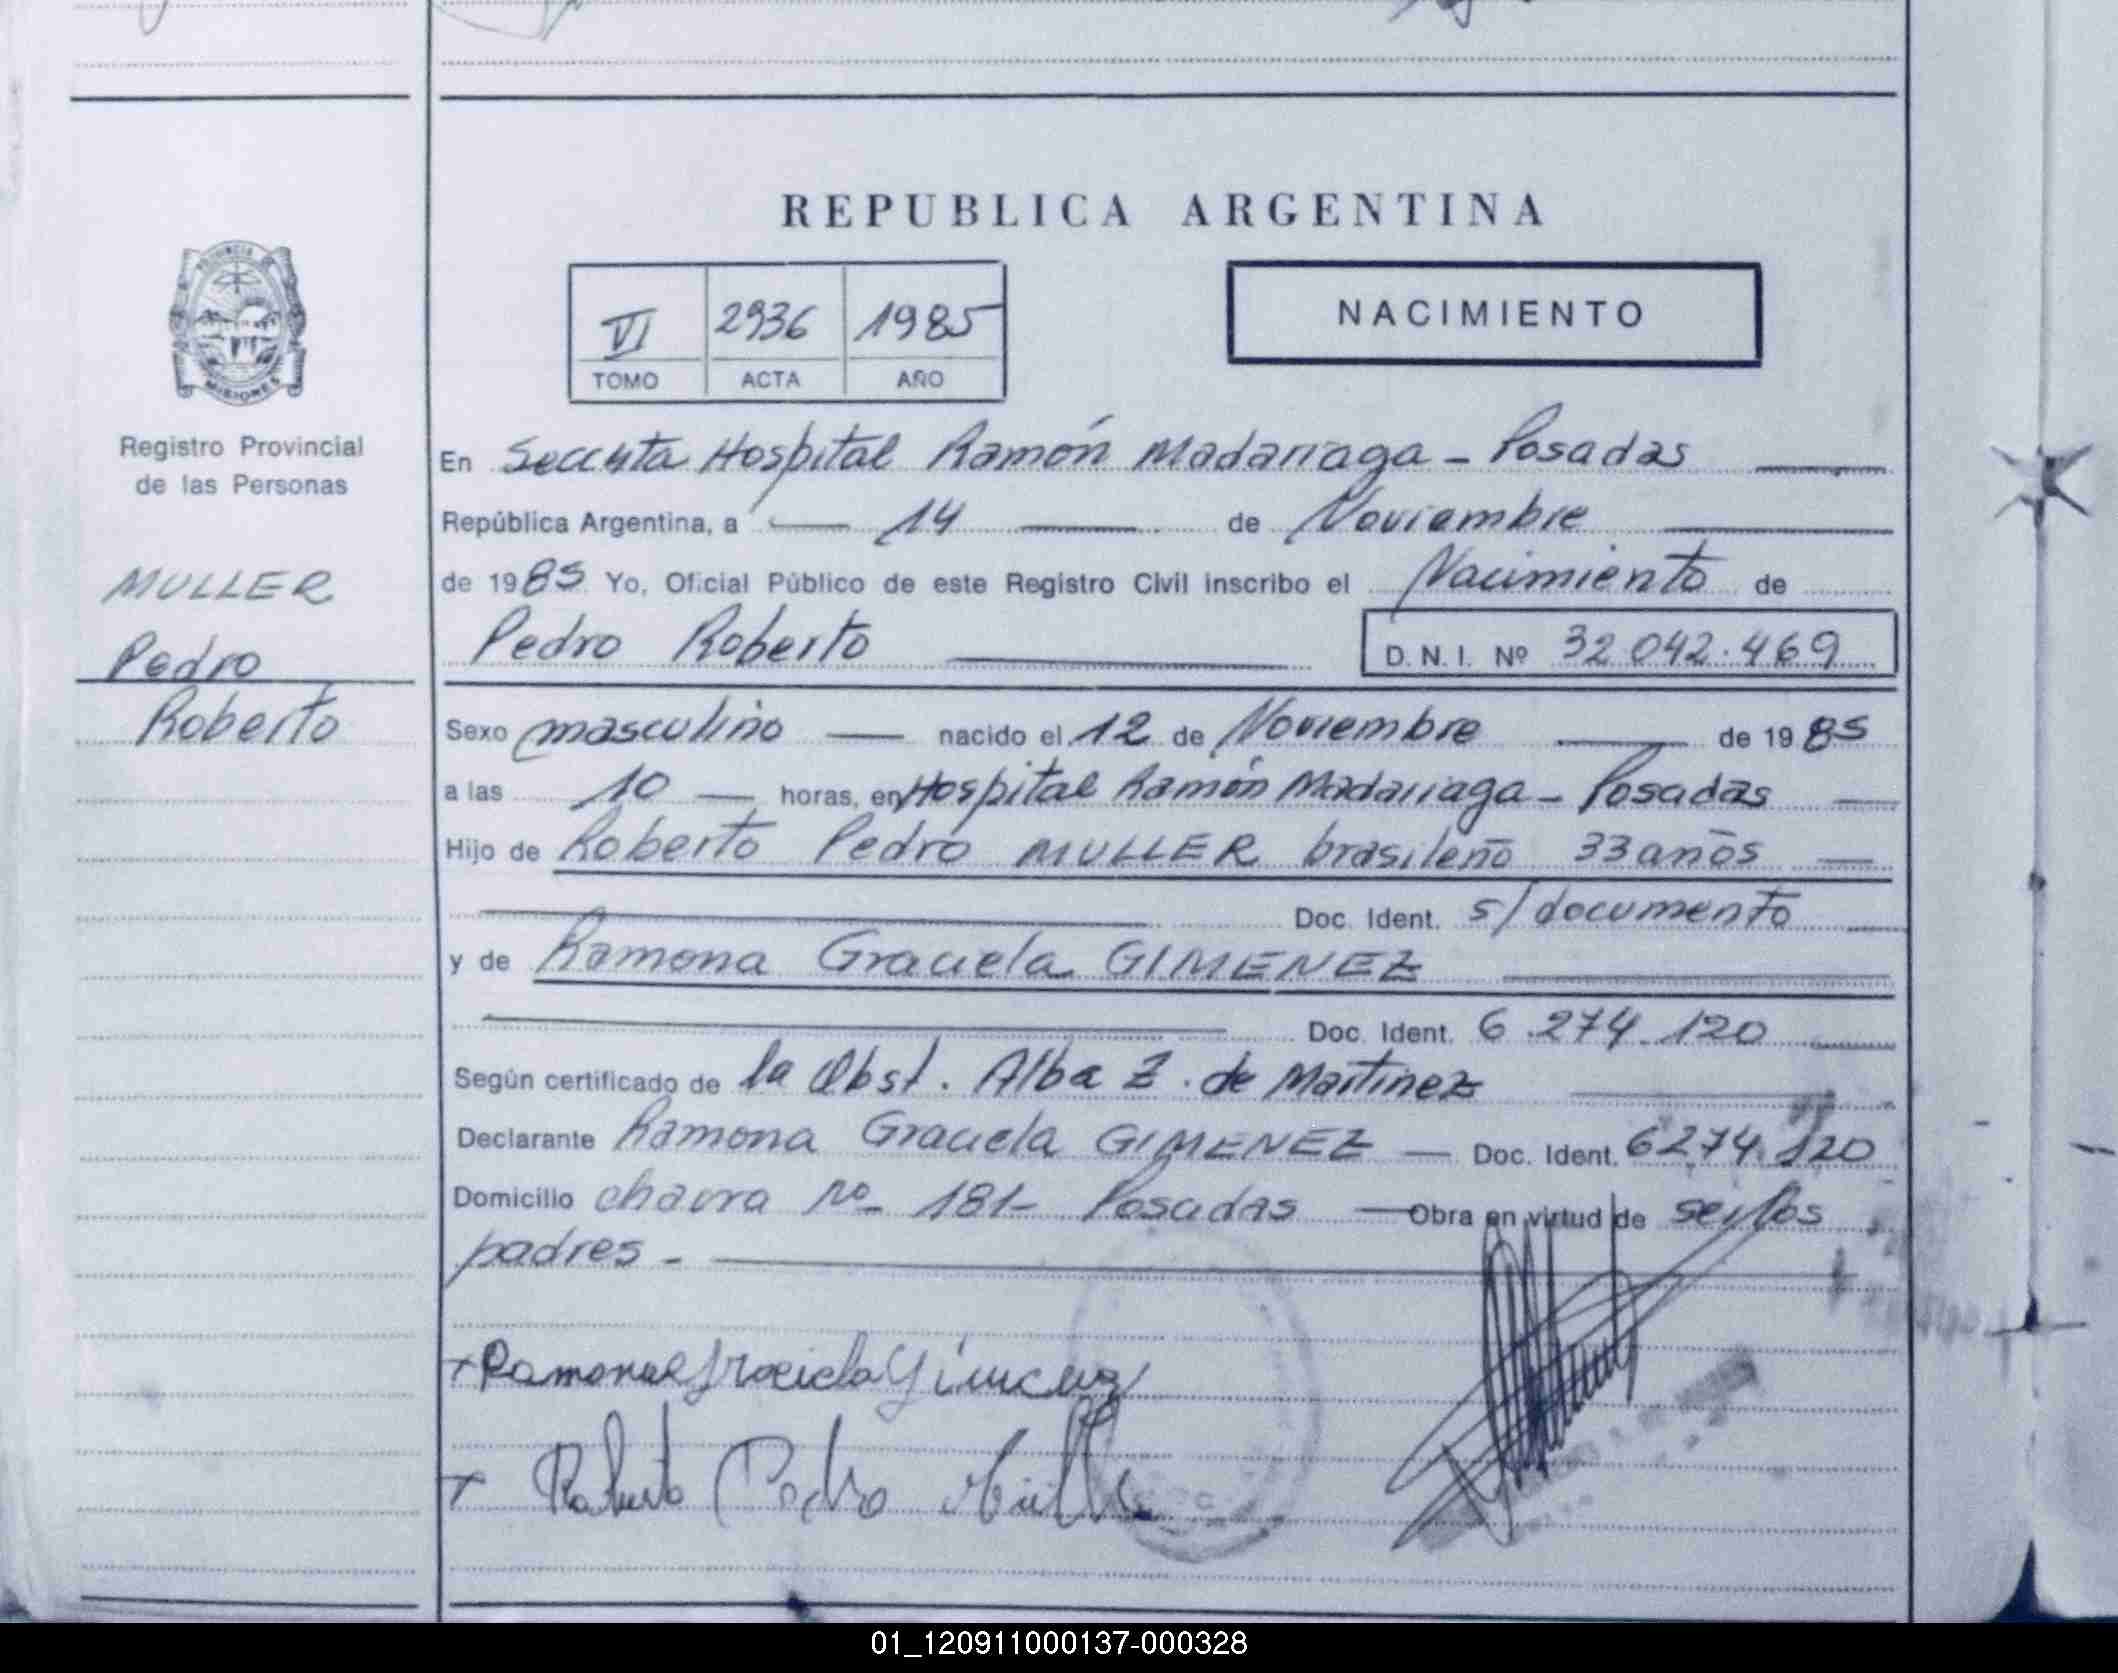 REPUBLICA ARGENTINA
PROVINCIA DE
MISIONES
VI 2936 1985
TOMO ACTA AÑO
NACIMIENTO
Registro Provincial
de las Personas
MULLER
Pedro
Roberto
En Seccta Hospital Ramón Madariaga - Posadas
República Argentina, a 14 de Noviembre
de 1985 Yo, Oficial Público de este Registro Civil inscribo el Nacimiento de
Pedro Roberto D.N.I. Nº 32 042.469
Sexo masculino nacido el 12 de Noviembre de 1985
a las 10 horas, en Hospital Ramón Madariaga - Posadas
Hijo de Roberto Pedro MULLER brasileño 33 años
Doc. Ident. s/documento
y de Ramona Graciela GIMENEZ
Doc. Ident. 6.274.120
Según certificado de la Obst. Alba Z. de Martinez
Declarante Ramona Graciela GIMENEZ - Doc. Ident. 6274.120
Domicilio chacra nº 181- Posadas Obra en virtud de ser los
padres -
+ Ramona Graciela Gimenez
+ Roberto Pedro Muller
01_120911000137-000328